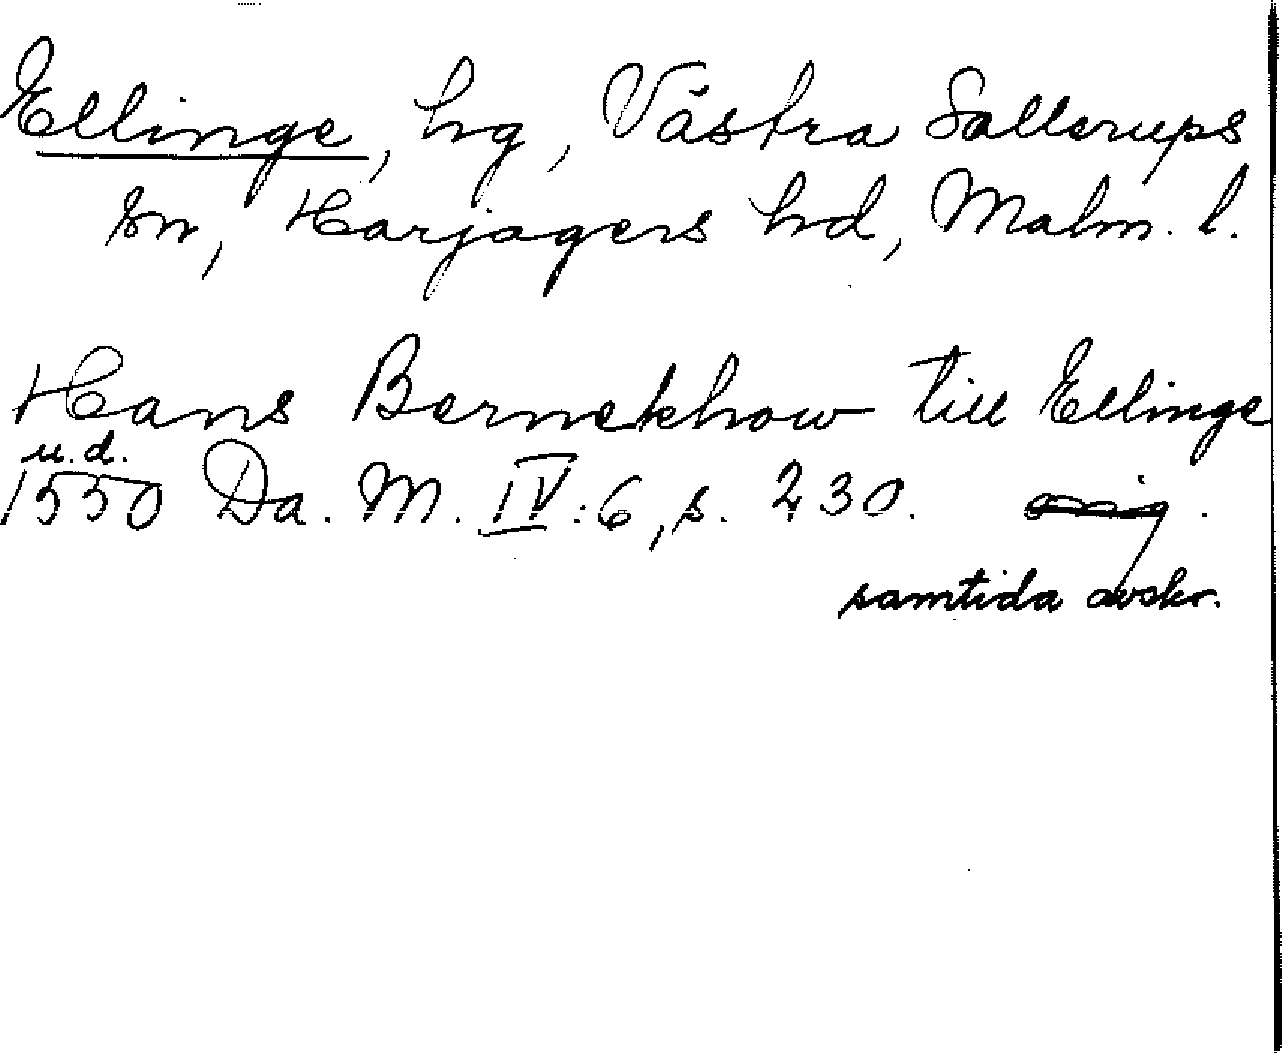 Ellinge, hg, Västra Sallerups
sn, Harjagers hd, Malm. l.
Hans Bernekhow till Ellinge
u.d.
1550 Da. M. IV:6, s. 230. orig.
samtida avskr.